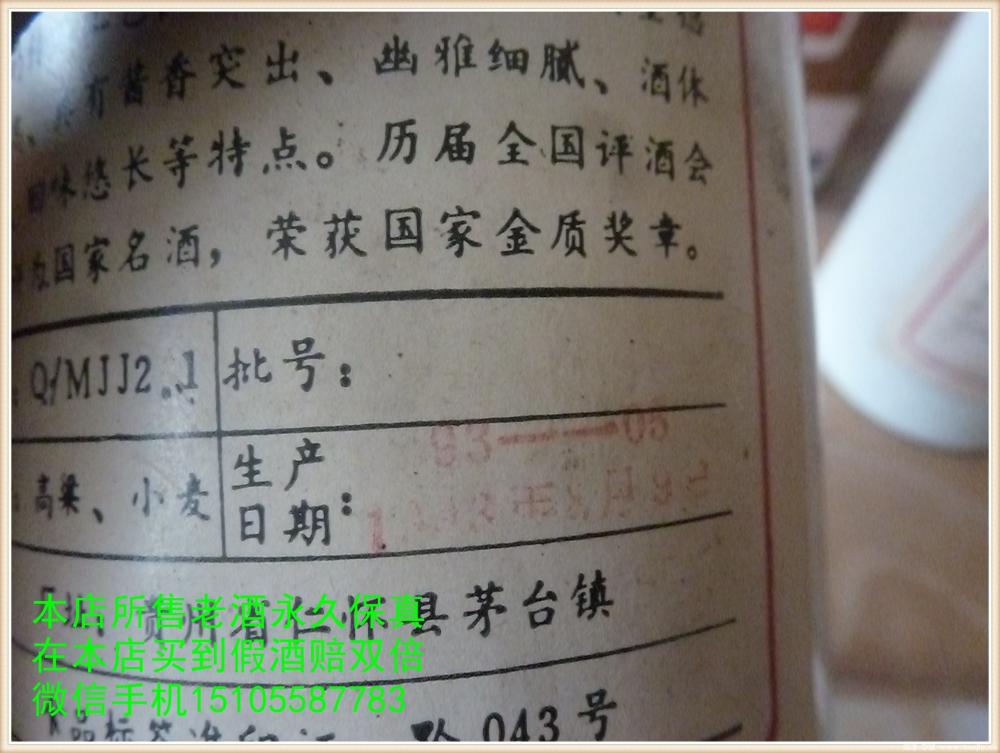 有酱香突出、幽雅细腻、酒体
回味悠长等特点。历届全国评酒会
国家名酒，荣获国家金质奖章。
Q/MJJ2.1
批号：
83——05
高粱、小麦
生产
日期：
省仁怀县茅台镇
本店所售老酒永久保真
在本店买到假酒赔双倍
微信手机15105587783
品标签准印证 黔043号